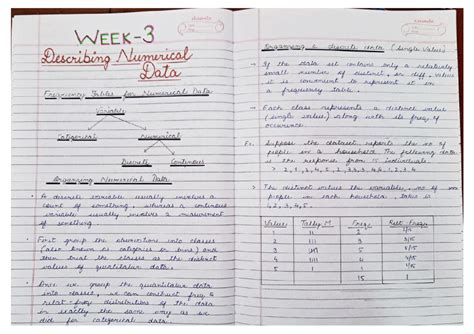 WEEK-3
Describing Numerical
Data
Frequency Tables for Numerical Data
Variable
Categorical
Numerical
Discrete
Continuous
Organizing Numerical Data
A discrete variable usually involves a
count of something, whereas a continuous
variable usually involves a measurement
of something.
First group the observations into classes
(also known as categories or bins) and
then treat the classes as the distinct
values of qualitative data.
Once we group the quantitative data
into classes, we can construct freq &
relat. freq distributions of the data
in exactly the same way as we
did for categorical data.
Organizing discrete data (Single Value)
If the data set contains only a relatively
small number of distinct, or diff. values
it is convenient to represent it in
a frequency table.
Each class represents a distinct value
(single value) along with its freq. of
occurrence.
Ex. Suppose the dataset reports the no of
people in a household. The following data
is the response from 15 individuals
The distinct values the variable, no of
people in each household, takes is
1, 2, 3, 4, 5.
Value Tally M Freq. Relt. Freq.
1 2
2
3 5
4
5 1 1/15
15 1